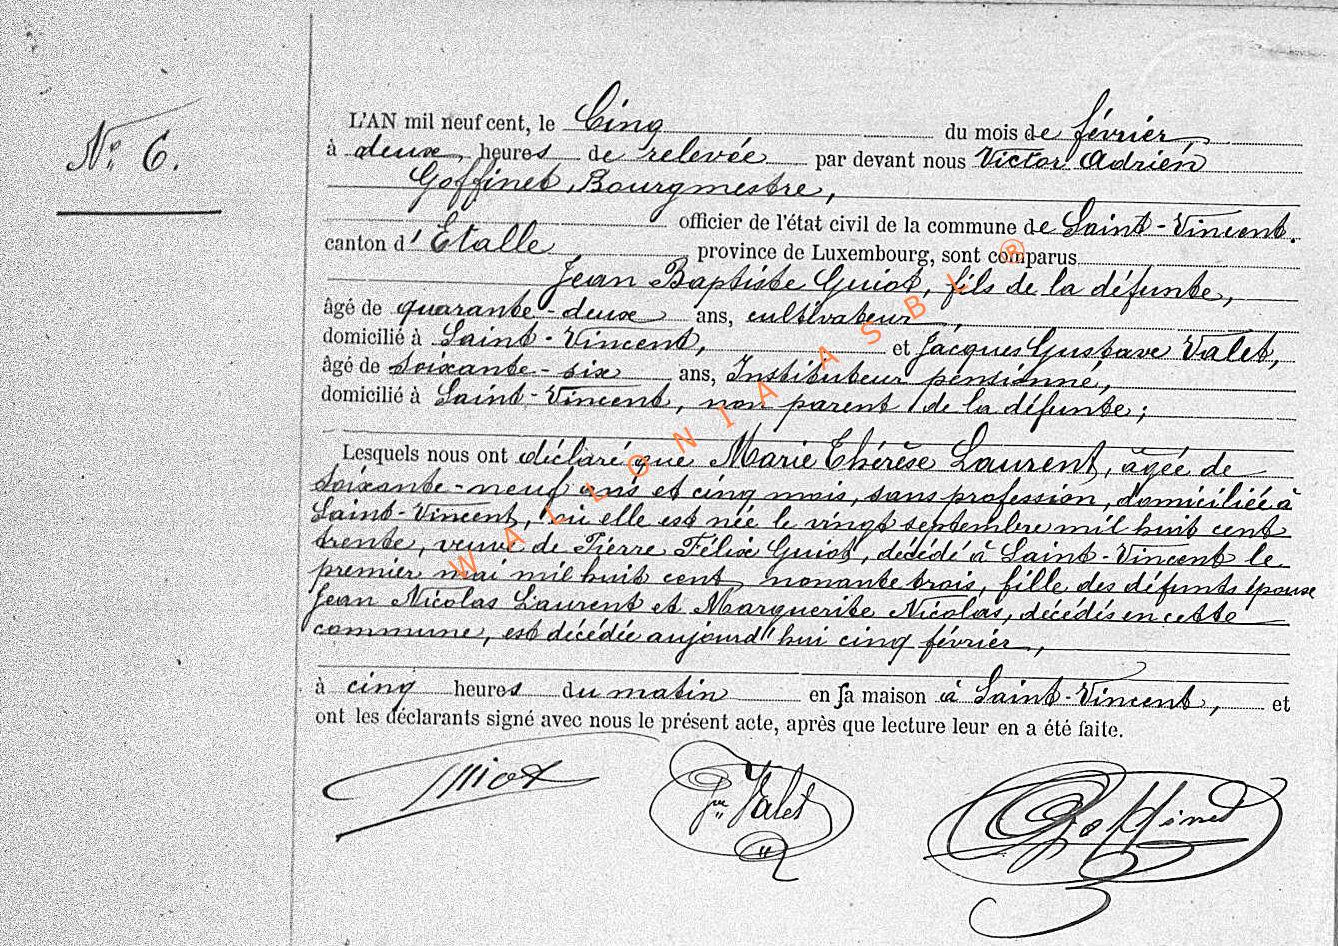 N° 6.
L'AN mil neuf cent, le Cinq du mois de février,
à deux heures de relevée par devant nous Victor Adrien
Goffinet, Bourgmestre,
officier de l'état civil de la commune de Saint-Vincent.
canton d'Etalle province de Luxembourg, sont comparus
Jean Baptiste Guiot, fils de la défunte,
âgé de quarante-deux ans, cultivateur,
domicilié à Saint-Vincent, et Jacques Gustave Valet,
âgé de soixante-six ans, Instituteur pensionné,
domicilié à Saint-Vincent, non parent de la défunte;
Lesquels nous ont déclaré que Marie Thérèse Laurent, âgée de
soixante-neuf ans et cinq mois, sans profession, domiciliée à
Saint-Vincent, où elle est née le vingt septembre mil huit cent
trente, veuve de Pierre Félix Guiot, décédé à Saint-Vincent le
premier mai mil huit cent nonante trois, fille des défunts époux
Jean Nicolas Laurent et Marguerite Nicolas, décédés en cette
commune, est décédée aujourd'hui cinq février,
à cinq heures du matin en sa maison à Saint-Vincent, et
ont les déclarants signé avec nous le présent acte, après que lecture leur en a été faite.
Guiot Valet Goffinet
WALLONIA ASBL ®